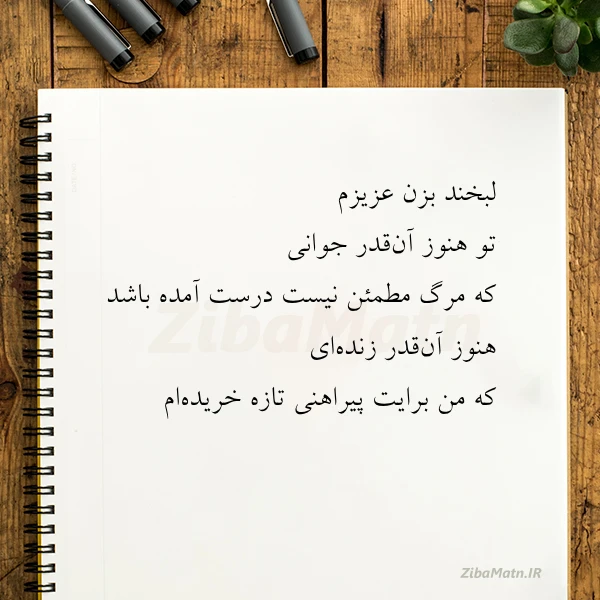 لبخند بزن عزیزم
تو هنوز آن‌قدر جوانی
که مرگ مطمئن نیست درست آمده باشد
هنوز آن‌قدر زنده‌ای
که من برایت پیراهنی تازه خریده‌ام
ZibaMatn
ZibaMatn.IR